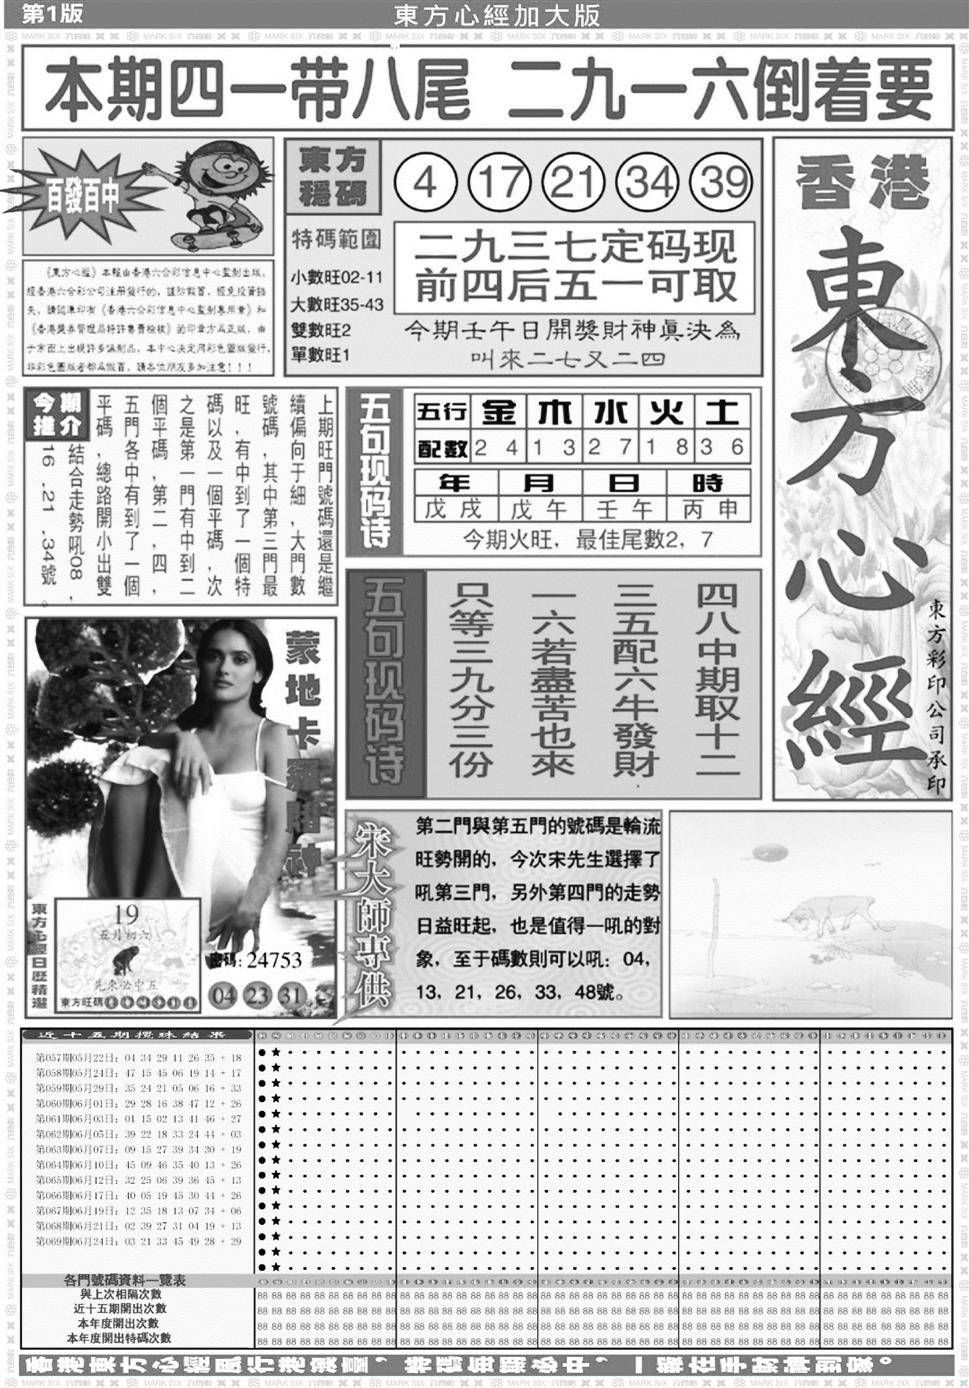 第1版
東方心經加大版
本期四一带八尾 二九一六倒着要
百發百中
東方
穩碼
4 17 21 34 39
特碼範圍
小數旺02-11
大數旺35-43
雙數旺2
單數旺1
二九三七定码现
前四后五一可取
今期壬午日開獎財神眞決為
叫來二七又二四
香港
東方心經
東方彩印公司承印
《東方心經》本報由香港六合彩信息中心監制出版，
經香港六合彩公司注册發行的，
《香港獎券管理局特許書費檢核》的印章方爲正版，由
今期
推介
上期旺門號碼還是繼
續偏向于細，大門數
號碼，其中第三門最
旺，有中到了一個特
碼以及一個平碼，次
之是第一門有中到二
個平碼，第二，四，
五門各中有到了一個
平碼，總路開小出雙
。
結合走勢吼08，
16，21，34號。
五句现码诗
五行 金 木 水 火 土
配數 2 4 1 3 2 7 1 8 3 6
年 月 日 時
戊戌 戊午 壬午 丙申
今期火旺，最佳尾數2，7
五句现码诗
四八中期取十二
三五配六牛發財
一六若盡苦也來
只等三九分三份
蒙地卡羅賭神
東方心經日歷精選
19
五月初六
先來必中五
東方旺碼
密碼：24753
04 23 31
宋大師專供
第二門與第五門的號碼是輪流
旺勢開的，今次宋先生選擇了
吼第三門，另外第四門的走勢
日益旺起，也是值得一吼的對
象，至于碼數則可以吼：04，
13，21，26，33，48號。
近十五期攪珠結果
第057期05月22日：04 34 29 11 26 35 + 18
第058期05月24日：47 15 45 06 19 14 + 17
第059期05月29日：35 24 21 05 06 16 + 33
第060期06月01日：29 28 16 38 47 12 + 26
第061期06月03日：01 15 02 13 41 46 + 27
第062期06月05日：39 22 18 33 24 44 + 03
第063期06月07日：09 15 27 39 34 30 + 19
第064期06月10日：45 09 46 35 40 13 + 26
第065期06月12日：32 25 06 39 36 45 + 13
第066期06月17日：40 05 19 45 30 44 + 26
第067期06月19日：12 35 18 13 07 34 + 06
第068期06月21日：02 39 27 31 04 19 + 13
第069期06月24日：03 21 33 45 49 28 + 29
各門號碼資料一覽表
與上次相隔次數
近十五期開出次數
本年度開出次數
本年度開出特碼次數
香港東方心經風行港澳臺，特碼每期必中，一版在手財神到家。